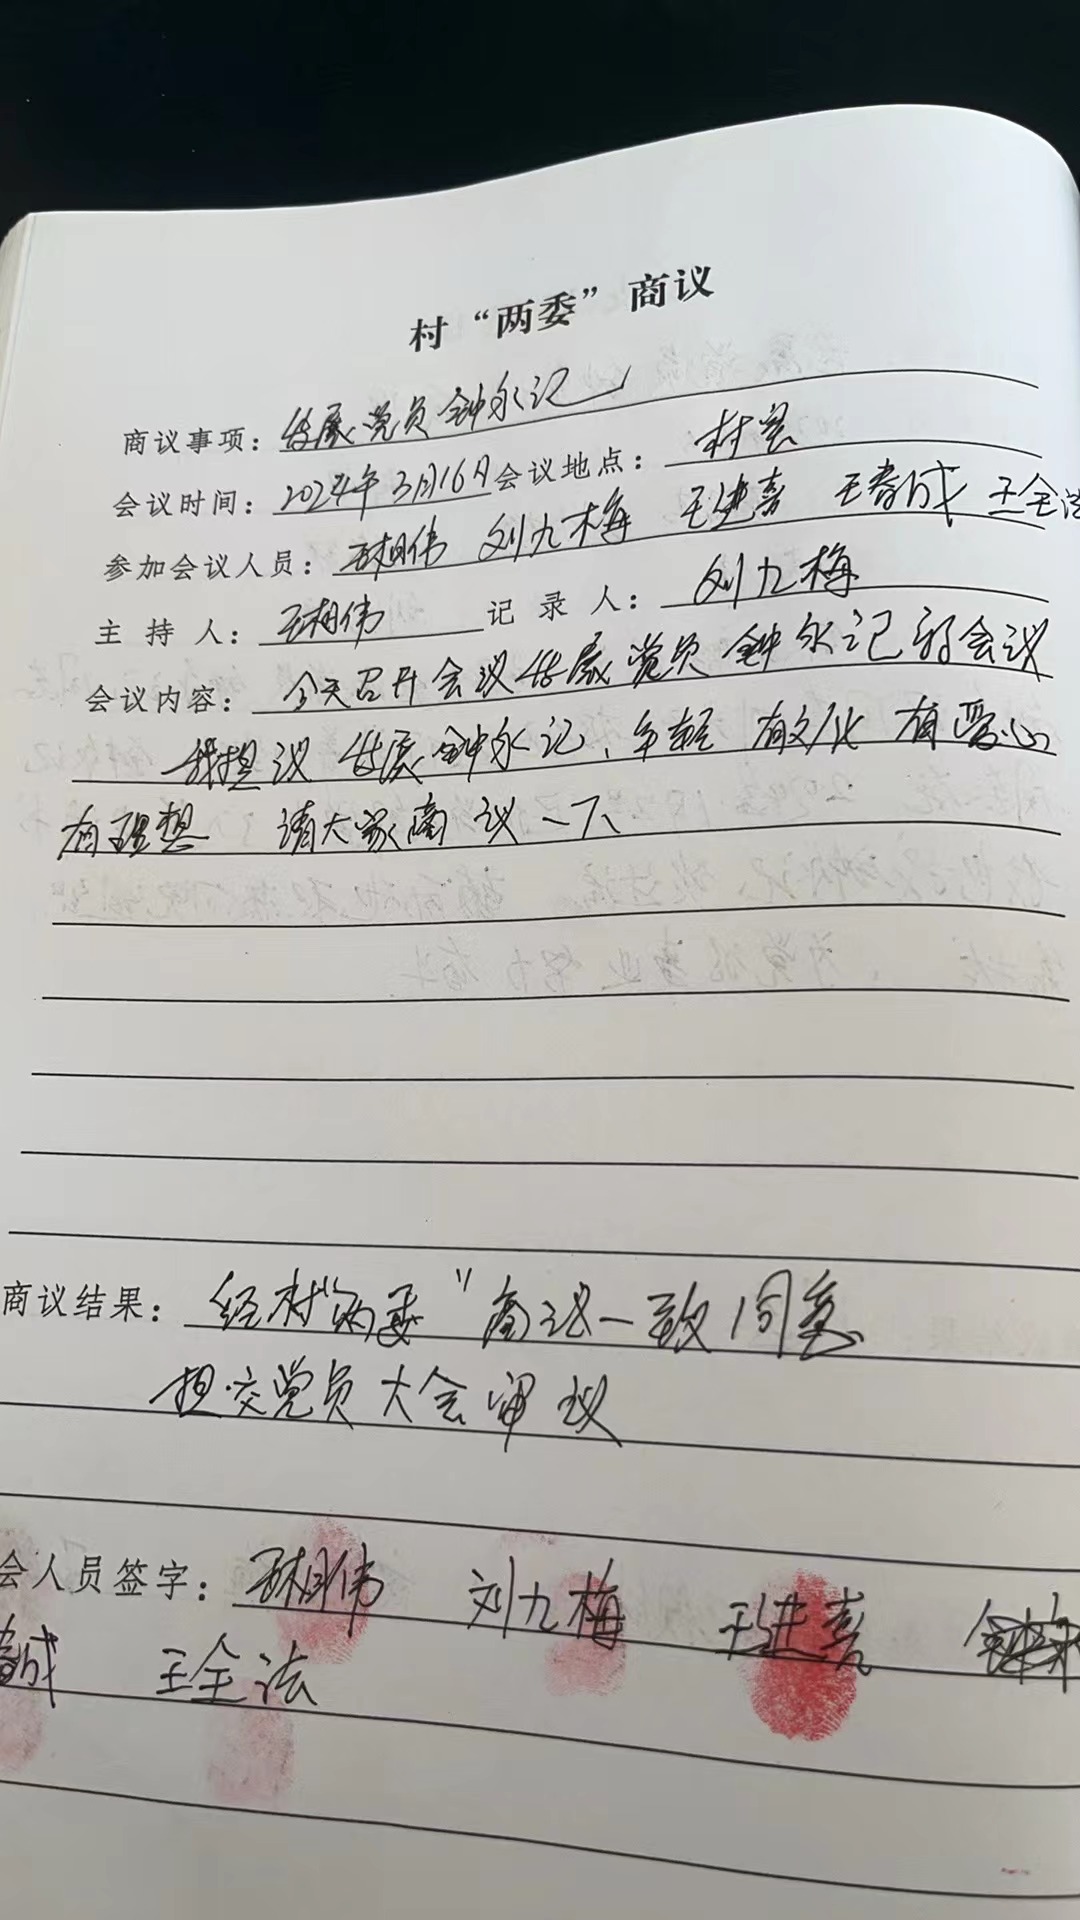 村“两委”商议
商议事项：发展党员钟永记
会议时间：2024年3月16日会议地点：村室
参加会议人员：王相伟 刘九梅 王进喜 王春成 王全法
主持人：王相伟 记录人：刘九梅
会议内容：今天召开会议发展党员钟永记的会议
我提议发展钟永记、年轻 有文化 有爱心
有理想 请大家商议一下
商议结果：经村“两委”商议一致同意
提交党员大会审议
会人员签字：王相伟 刘九梅 王进喜
春成 王全法